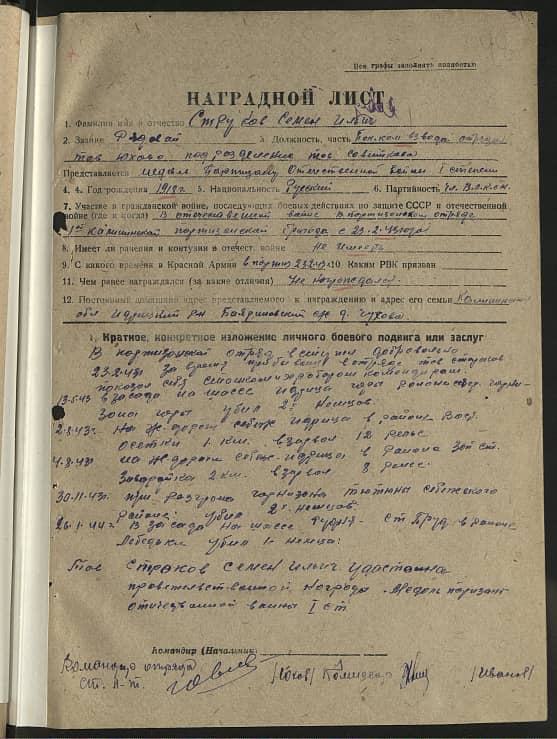 Все графы заполнять полностью
НАГРАДНОЙ ЛИСТ
1. Фамилия имя и отчество Струков Семен Ильич
2. Звание Рядовой 3. Должность, часть Пом.ком взвода отряда
тов Юхово, подразделение тов
Представляется медаль Партизану Отечественной войны I степени
4. 4. Год рождения 1918 г. 5. Национальность Русский 6. Партийность чл. В.л.к.с.м.
7. Участие в гражданской войне, последующих боевых действиях по защите СССР и отечественной
войне (где и когда) В отечественной войне в партизанском отряде
1й Калининской партизанской бригаде с 23.2.43 года
8. Имеет ли ранения и контузии в отечест. войне не имееть
9. С какого времени в Красной Армии в партиз 23.2.43 10. Каким РВК призван
11. Чем ранее награждался (за какие отличия) Не награждался
12. Постоянный домашний адрес представляемого к награждению и адрес его семьи Калининская
обл Идрицкий р-н с/с д. Чухово
1. Краткое, конкретное изложение личного боевого подвига или заслуг
В партизанский отряд вступил добровольно
23.2.43г. За время пребывания в отряде тов Струков
показал себя смелым и храбрым командиром.
13.5.43 в засаде на шоссе Идрица
убил 2х немцев.
2.8.43г. На ж-дороге Себеж Идрица в районе Вост.
1 км. взорвал 12 рельс.
4.8.43г на ж-дороги Себеж-Идрица в районе Зап ст.
2 км. взорвал 8 рельс.
30.11.43г. при разгроме гарнизона Себежского
района: убил 2х немцев.
26.1.44г. В засаде на шоссе Рудня - ст. Пруд в районе
Лебедька убил 1 немца:
Тов Струков Семен Ильич удостоина
правительственной награды. Медаль партизан
отичественной войны I ст
Командир (Начальник)
Командир отряда
ст. л-т. /Юхов/ Комиссар /Иванов/